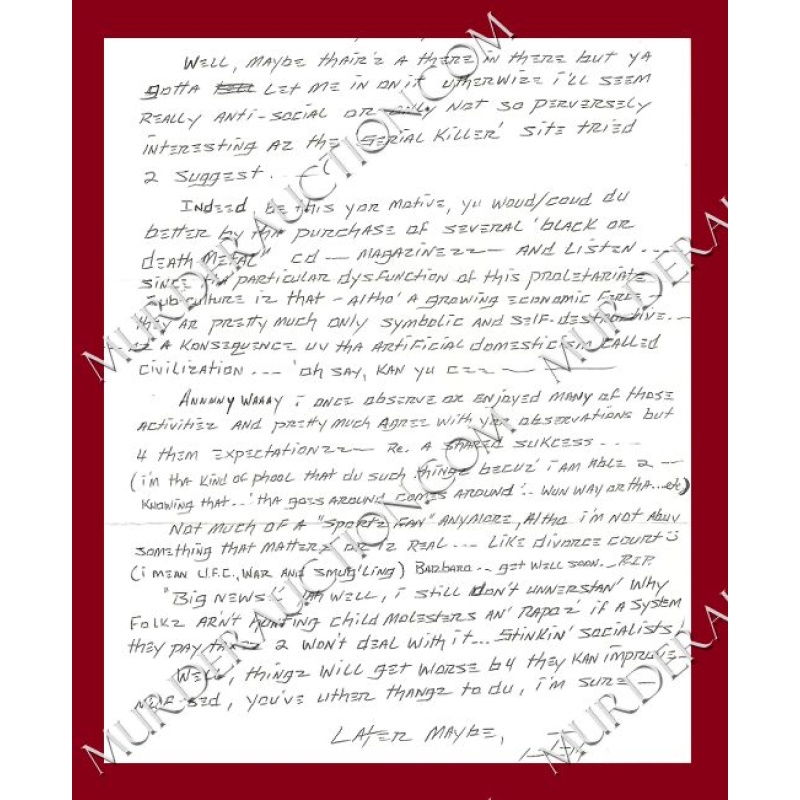 Well, maybe thair'z a there in there but ya
gotta let me in on it utherwize i'll seem
really anti-social or only not so perversely
interesting az the 'serial killer' site tried
2 suggest...
Indeed, be this yor motive, yu woud/coud du
better by tha purchase of several 'black or
death metal" cd — magazinezz — and listen...
since tha particular dysfunction of this proletariate
sub-culture iz that - altho' a growing economic force -
they ar pretty much only symbolic and self-destructive.
— a konsequence uv tha artificial domesticism called
civilization... 'oh say, kan yu cee —
Annnny waaay i once observe or enjoyed many of those
activitiez and pretty much agree with yor observations but
4 them expectationzz — Re. a shared sukcess....
(i'm tha kind of phool that du such thingz becuz' i am able 2 —
knowing that...' tha goes around comes around'.. wun way or tha...etc)
Not much of a "sportz fan" anymore, altho i'm not abuv
something that matters or iz real... like divorce court
(i mean U.F.C., war and smug'ling) Barbara.. get well soon.. R.I.P.
"Big news: well, i still don't unnerstan' why
folkz arn't hunting child molesters an' rapoz if a system
they pay 2 won't deal with it... stinkin' socialists,
Well, thingz will get worse b4 they kan improve —
nuf sed, you've uther thangz to du, i'm sure —
Later maybe,
MURDERAUCTION.COM
MURDERAUCTION.COM
MURDERAUCTION.COM